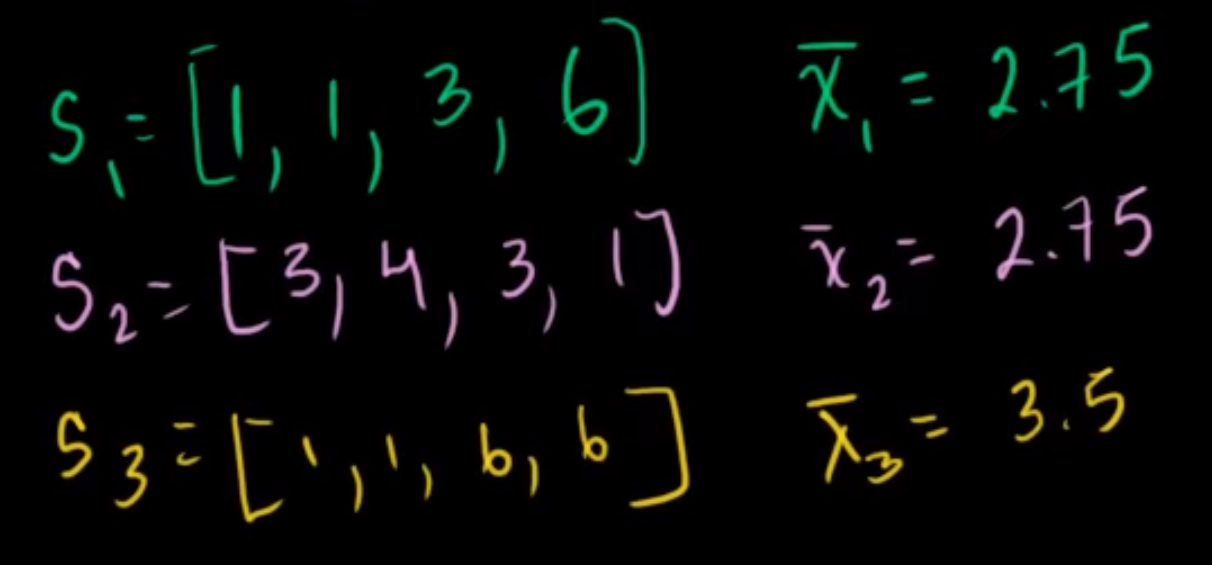 S₁ = [1, 1, 3, 6] x̄₁ = 2.75
S₂ = [3, 4, 3, 1] x̄₂ = 2.75
S₃ = [1, 1, 6, 6] x̄₃ = 3.5